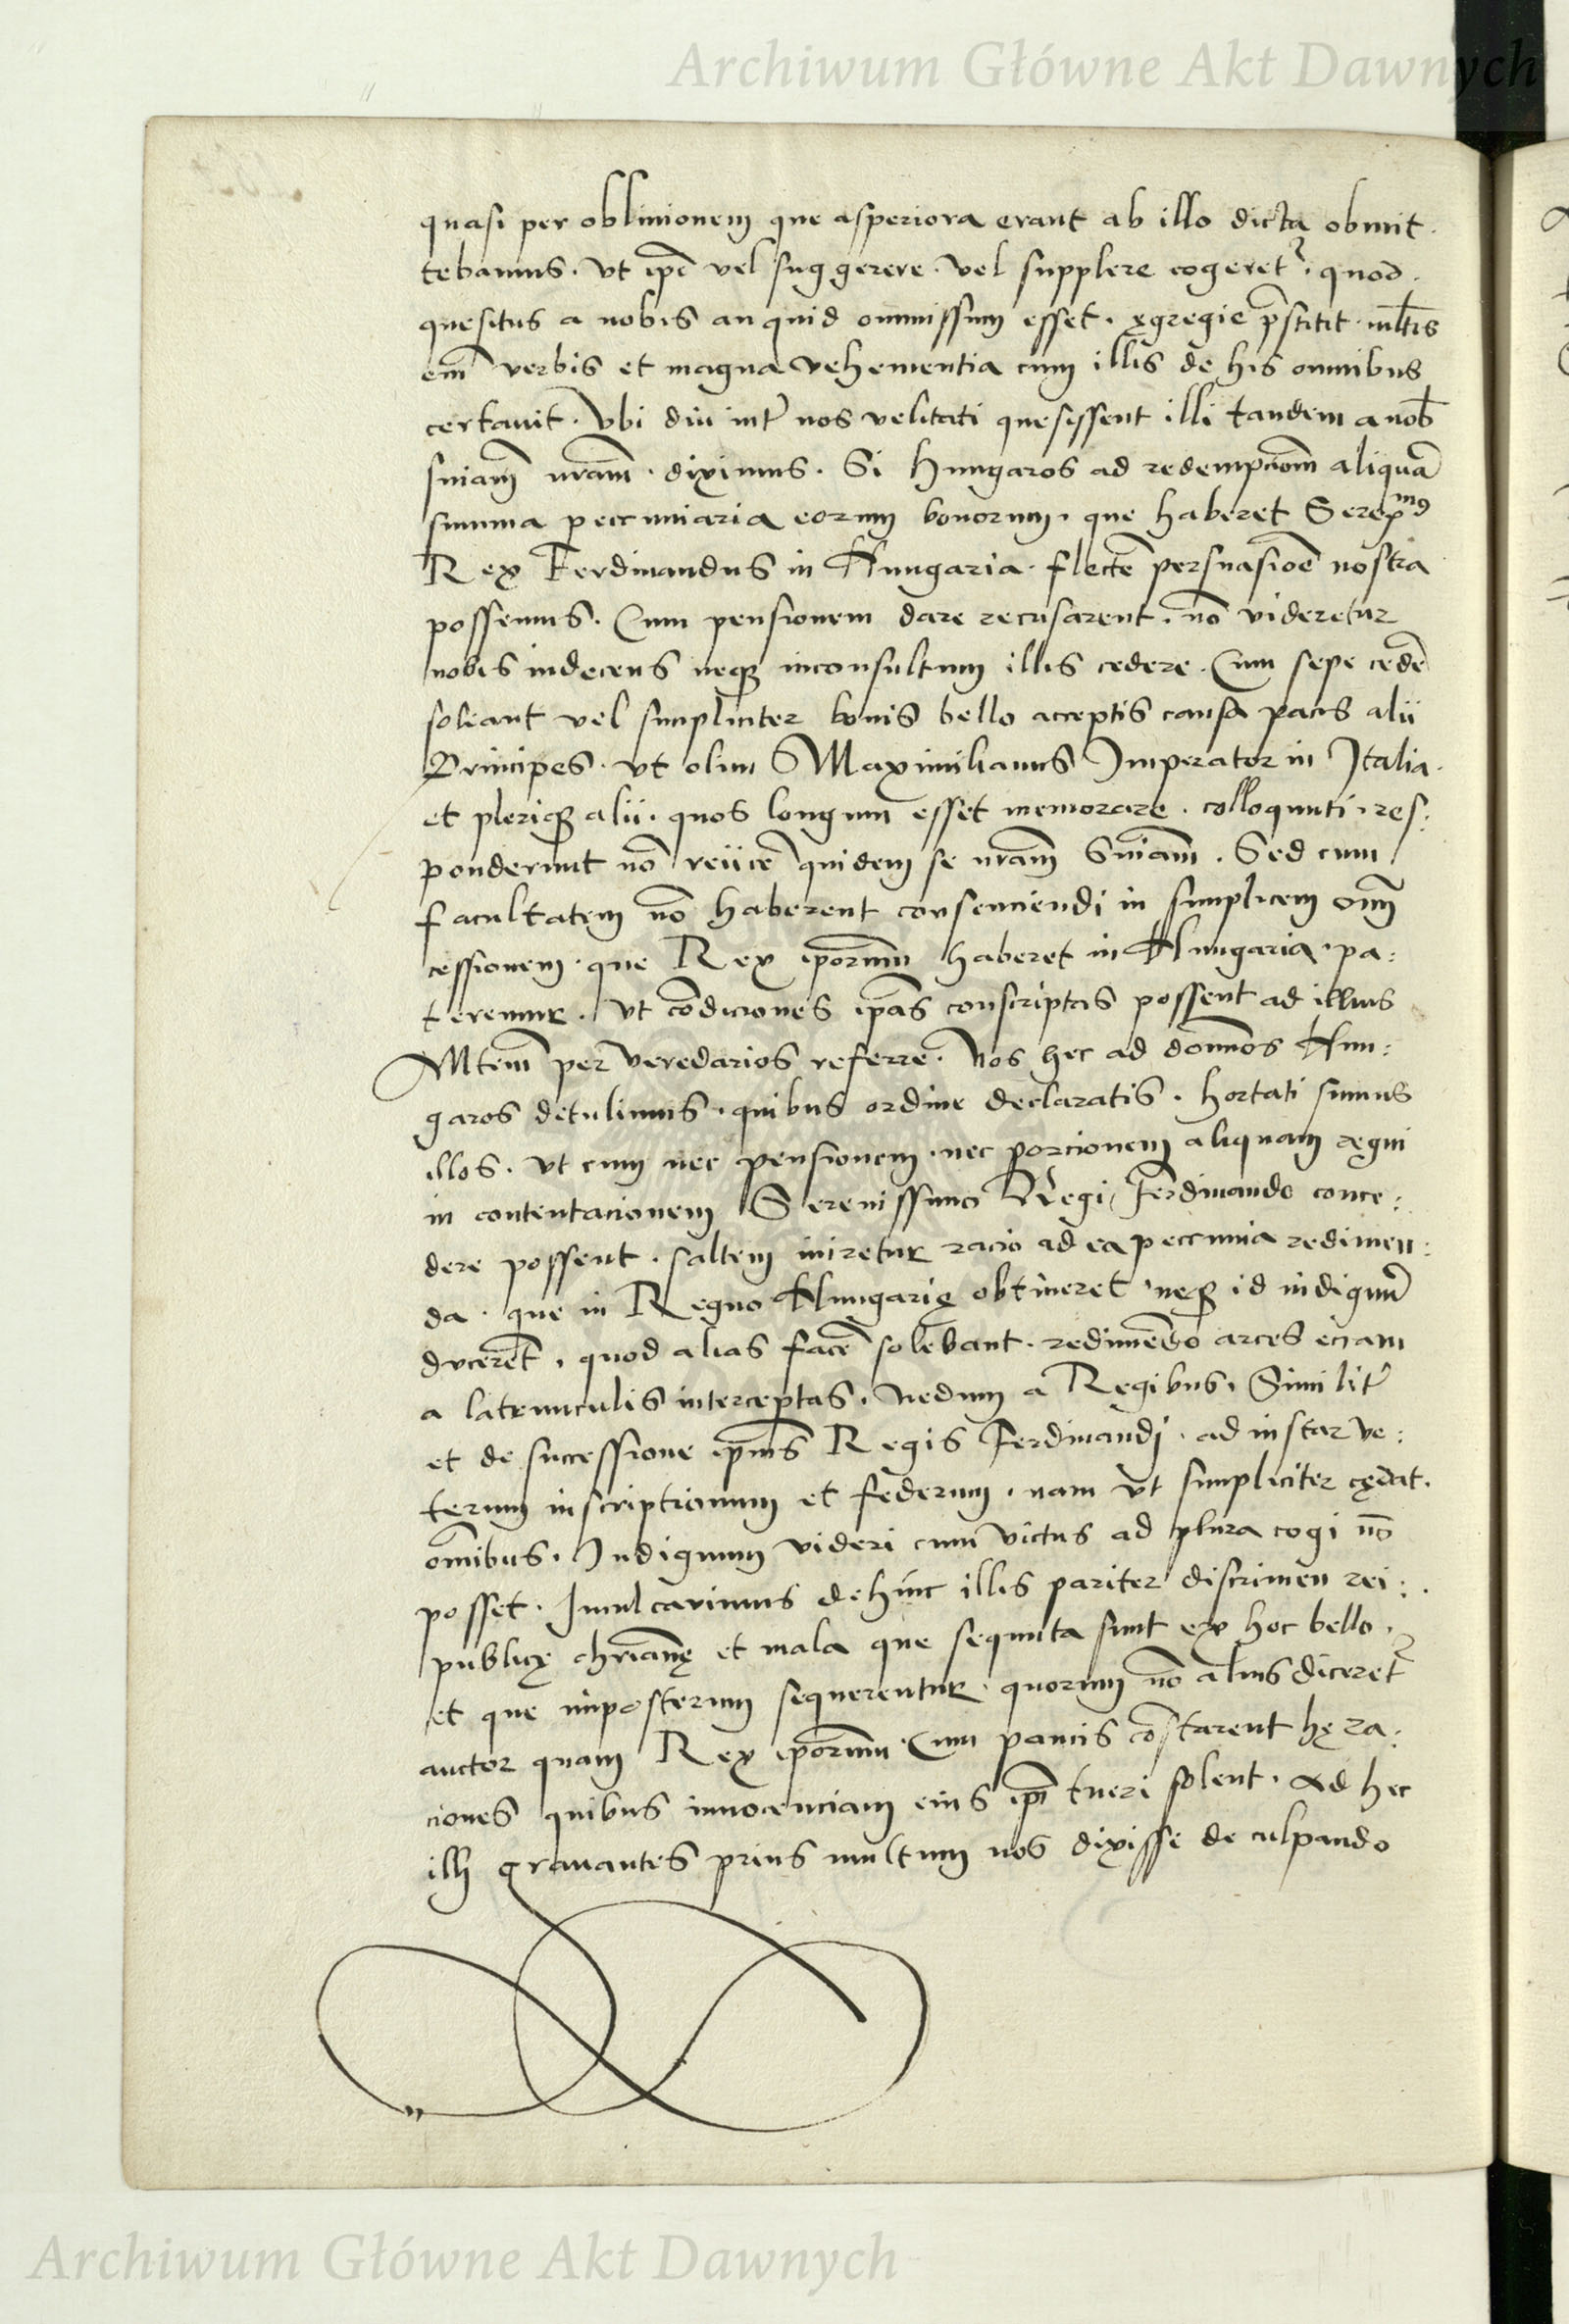 Archiwum Główne Akt Dawnych
quasi per obliuionem que asperiora erant ab illo dicta obmit.
tebamus. vt ip̄e vel suggerere. vel supplere cogeret᷑. quod.
quesitus a nobis an quid ommissum esset. ęgregie p̄stitit. ml̄tis
em̄ verbis et magna vehementia cum illis de his omnibus
certauit. Vbi diu int᷑ nos velitati quesissent illi tandem a nob̄
sniam̄ nram̄. diximus. Si Hungaros ad redempcōm aliquā
summa peccuniaria eorum bonorum. que haberet Sere​nmꝰ
Rex Ferdinandus in Hungaria. flectē persuasiōe nostra
possemus. Cum pensionem dare recusarent. nō videretur
nobis indecens neqꝫ inconsultum illis cedere. Cum sepe cedē
soleant vel simpliciter bonis bello acceptis causa pacis alii
Principes. vt olim Maximilianus Imperator in Italia.
et pleriqꝫ alii. quos longum esset memorare. colloquuti. res:
ponderunt nō reiicē quidem se nram̄ Sniam̄. Sed cum
facultatem nō haberent consenciendi in simplicem om̄
cessionem. que Rex ip̄orum haberet in Hungaria. pa:
teremur. vt cōdiciones ip̄as conscriptas possent ad illius
Mtem̄ per veredarios referre. Nos hec ad dom̄os Hun:
garos detulimus. quibus ordine declaratis. hortati sumus
illos. vt cum nec pensionem. nec porcionem aliquam regni
in contentacionem Serenissimo Regi Ferdinando conce:
dere possent. saltem iniretur racio ad ea peccunia redimen:
da. que in Regno Hungarię obtineret neqꝫ id indignū
ducerēt. quod alias facē solebant. redimēdo arces eciam
a latrunculis interceptas. nedum a Regibus. Similit᷑
et de successione ip̄ius Regis Ferdinandi. ad instar ve:
terum inscriptionum et federum. nam vt simpliciter cędat.
om̄ibus. Indignum videri cum victus ad plura cogi nō
posset. Inculcauimus dehinc illis pariter discrimen rei:
publicę chrianę et mala que sequuta sunt ex hoc bello.
et que imposterum sequerentur. quorum nō alius diceret᷑
auctor quam Rex ip̄orum. Cum paucis cōstarent hę ra:
ciones quibus innocenciam eius ip̄i tueri solent. Ad hec
illi grauantes prius multum nos dixisse de culpando
Archiwum Główne Akt Dawnych